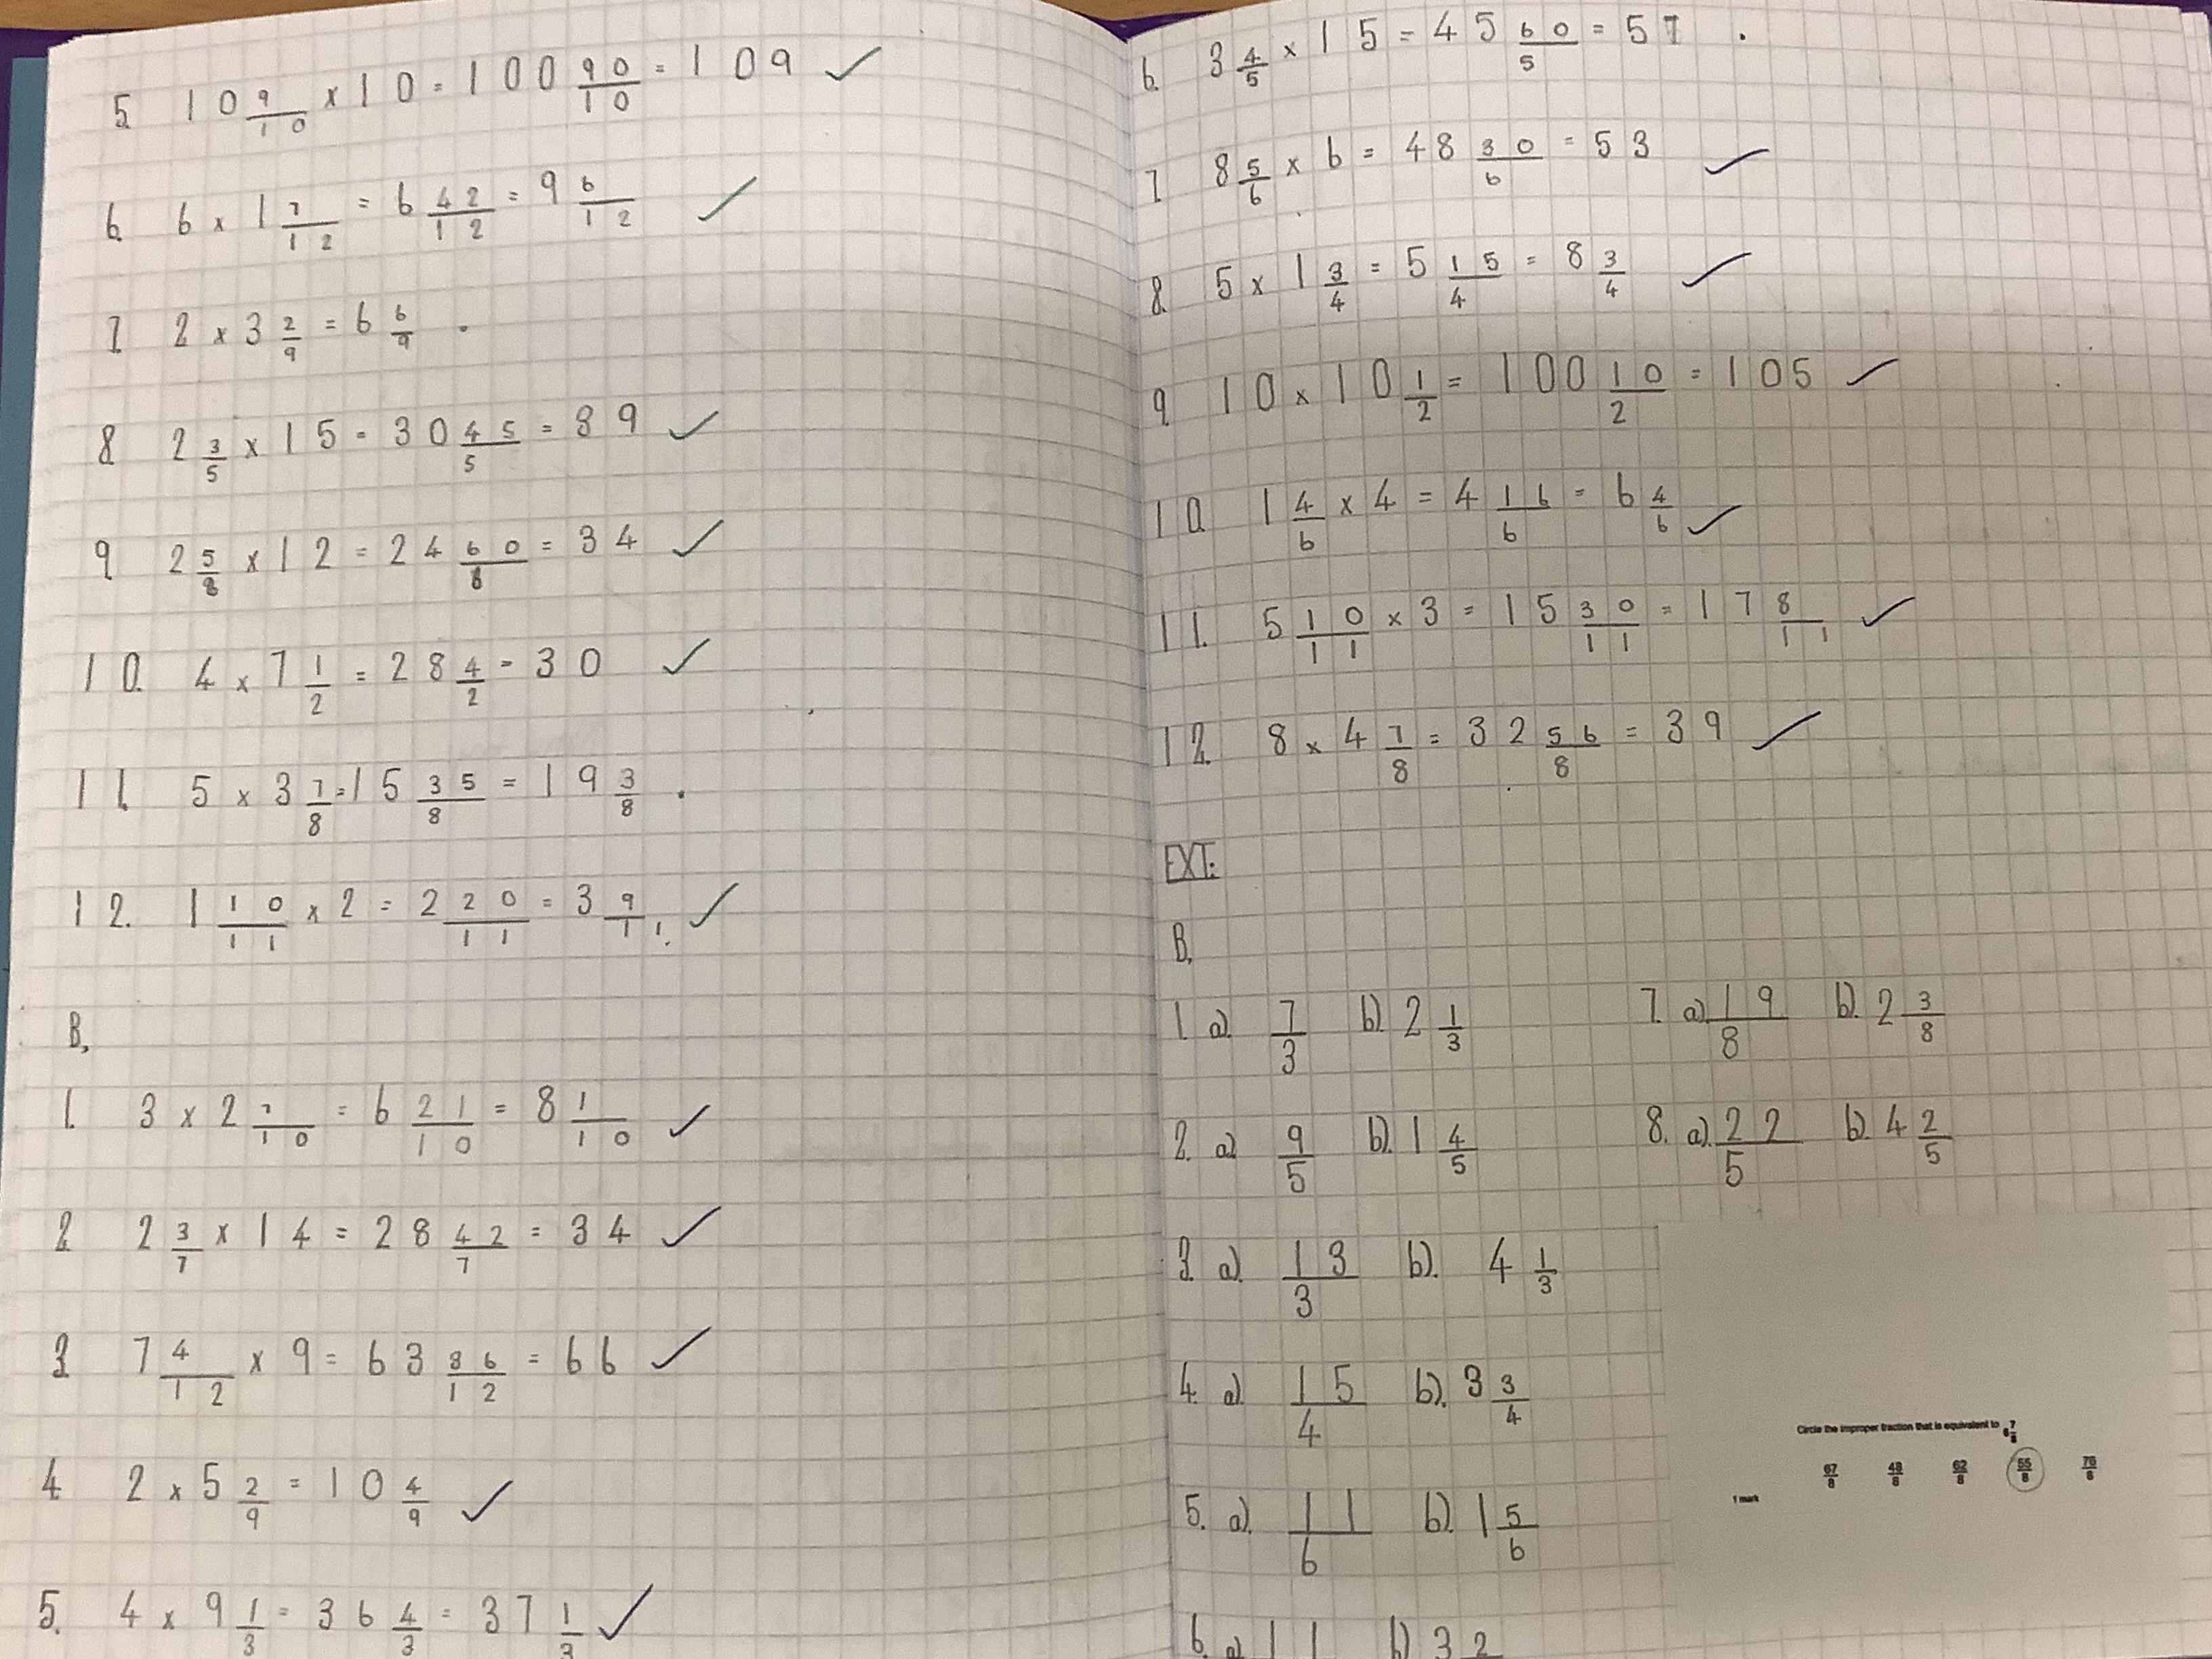 5. 10 9/10 x 10 = 100 90/10 = 109 ✓
6. 6 x 1 7/12 = 6 42/12 = 9 6/12 ✓
7. 2 x 3 2/9 = 6 6/9 .
8. 2 3/5 x 15 = 30 45/5 = 39 ✓
9. 2 5/8 x 12 = 24 60/8 = 34 ✓
10. 4 x 7 1/2 = 28 4/2 = 30 ✓
11. 5 x 3 7/8 = 15 35/8 = 19 3/8 .
12. 1 10/11 x 2 = 2 20/11 = 3 9/11. ✓
B,
1. 3 x 2 7/10 = 6 21/10 = 8 1/10 ✓
2. 2 3/7 x 14 = 28 42/7 = 34 ✓
3. 7 4/12 x 9 = 63 36/12 = 66 ✓
4. 2 x 5 2/9 = 10 4/9 ✓
5. 4 x 9 1/3 = 36 4/3 = 37 1/3 ✓
6. 3 4/5 x 15 = 45 60/5 = 57 .
7. 8 5/6 x 6 = 48 30/6 = 53 ✓
8. 5 x 1 3/4 = 5 15/4 = 8 3/4 ✓
9. 10 x 10 1/2 = 100 10/2 = 105 ✓
10. 1 4/6 x 4 = 4 16/6 = 6 4/6 ✓
11. 5 10/11 x 3 = 15 30/11 = 17 8/11 ✓
12. 8 x 4 7/8 = 32 56/8 = 39 ✓
EXT:
B,
1. a) 7/3 b) 2 1/3
2. a) 9/5 b) 1 4/5
3. a) 13/3 b). 4 1/3
4. a) 15/4 b). 3 3/4
5. a). 11/6 b). 1 5/6
6. a) 11 b) 3 2
7. a) 19/8 b). 2 3/8
8. a). 22/5 b). 4 2/5
Circle the improper fraction that is equivalent to 6 7/8
67/8 48/8 62/8 55/8 76/8
1 mark